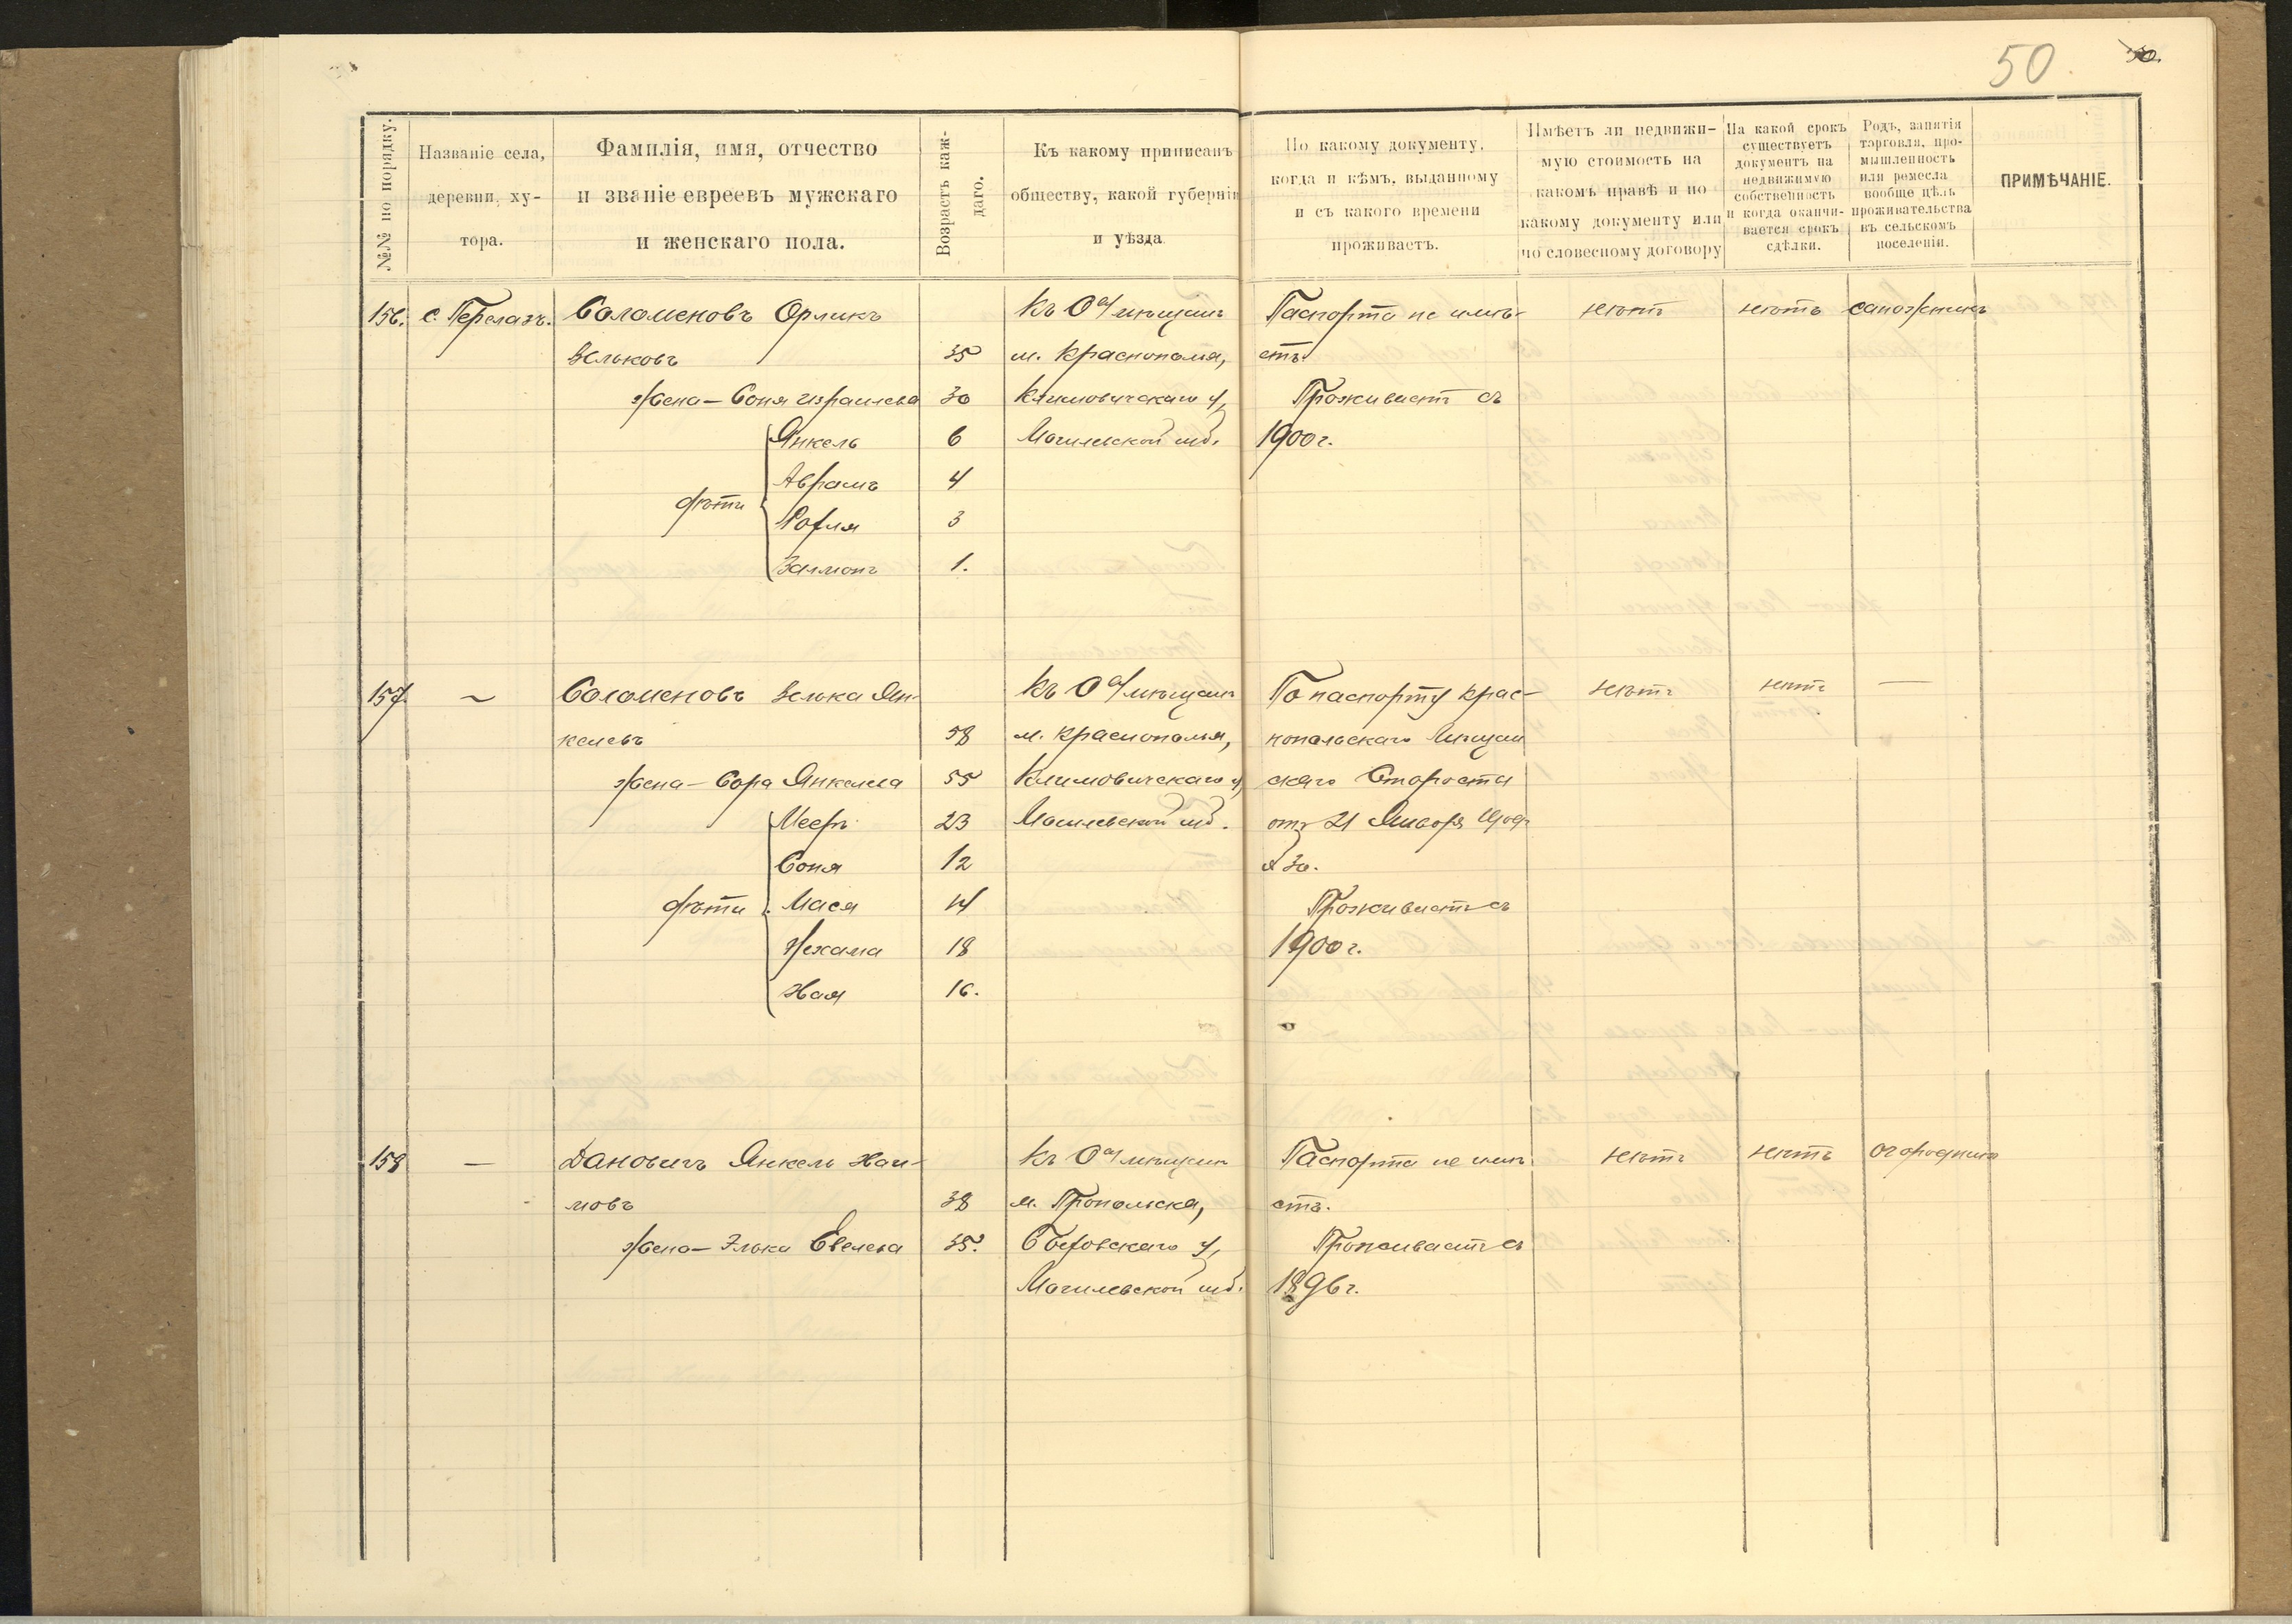 50
50.
№№ по порядку.
Названіе села,
деревни, ху-
тора.
Фамилія, имя, отчество
и званіе евреевъ мужскаго
и женскаго пола.
Возрастъ каж-
даго.
Къ какому приписанъ
обществу, какой губерніи
и уѣзда
По какому документу,
когда и кѣмъ, выданному
и съ какого времени
проживаетъ.
Имѣетъ ли недвижи-
мую стоимость на
какомъ правѣ и по
какому документу или
по словесному договору
На какой срокъ
существуетъ
документъ на
недвижимую
собственность
и когда оканчи-
вается срокъ
сдѣлки.
Родъ, занятія
торговля, про-
мышленность
или ремесла
вообще цѣль
проживательства
въ сельскомъ
поселеніи.
ПРИМѢЧАНІЕ.
156. с. Перелазъ. Соломеновъ Орликъ къ О-ву мѣщанъ Паспорта не имѣ- нѣтъ нѣтъ сапожникъ
Зельковъ 35 м. Краснополья, етъ.
жена — Соня Израилева 30 Климовичскаго у, Проживаетъ съ
Янкель 6 Могилевской губ. 1900 г.
Аврамъ 4
дѣти
Рофля 3
Залмонъ 1.
157 ~ Соломеновъ Зелька Ян- къ О-ву мѣщанъ По паспорту Крас- нѣтъ нѣтъ —
келевъ 58 м. Краснополья, нопольскаго Мѣщан
жена — Сора Янкелева 55 Климовичскаго у, скаго Старосты
Мееръ 23 Могилевской губ. отъ 21 Января
Соня 12 № 30.
дѣти Мася 14 Проживаетъ съ
Нехама 18 1900 г.
Хая 16.
158 — Дановичъ Янкель Хаи- къ О-ву мѣщанъ Паспорта не имѣ нѣтъ нѣтъ огородникъ
мовъ 38 м. Пропойска, етъ.
жена — Элька Евелева 35. Быховскаго у, Проживаетъ съ
Могилевской губ. 1896 г.